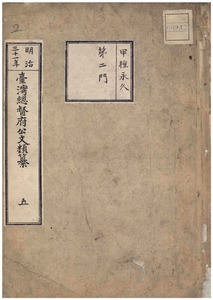 甲種永久
第二門
明治
三十一年
臺灣總督府公文類纂
五
2